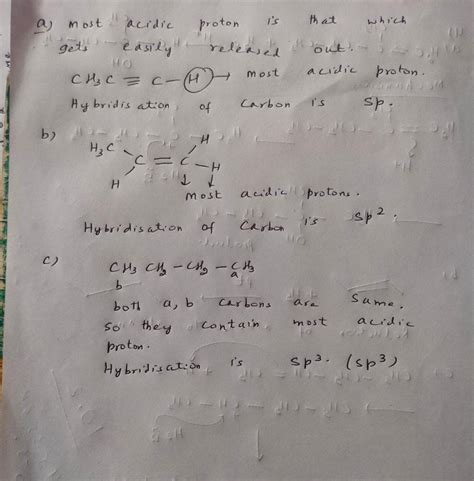 a) most acidic proton is that which
gets easily released out.
CH3C ≡ C – H → most acidic proton.
Hybridisation of carbon is sp.
b) H
H3C
C = C – H
H
most acidic protons.
Hybridisation of Carbon is sp2.
c) CH3 CH2 – CH2 – CH3
b a
both a, b carbons are same.
so they contain most acidic
proton.
Hybridisation is sp3. (sp3)